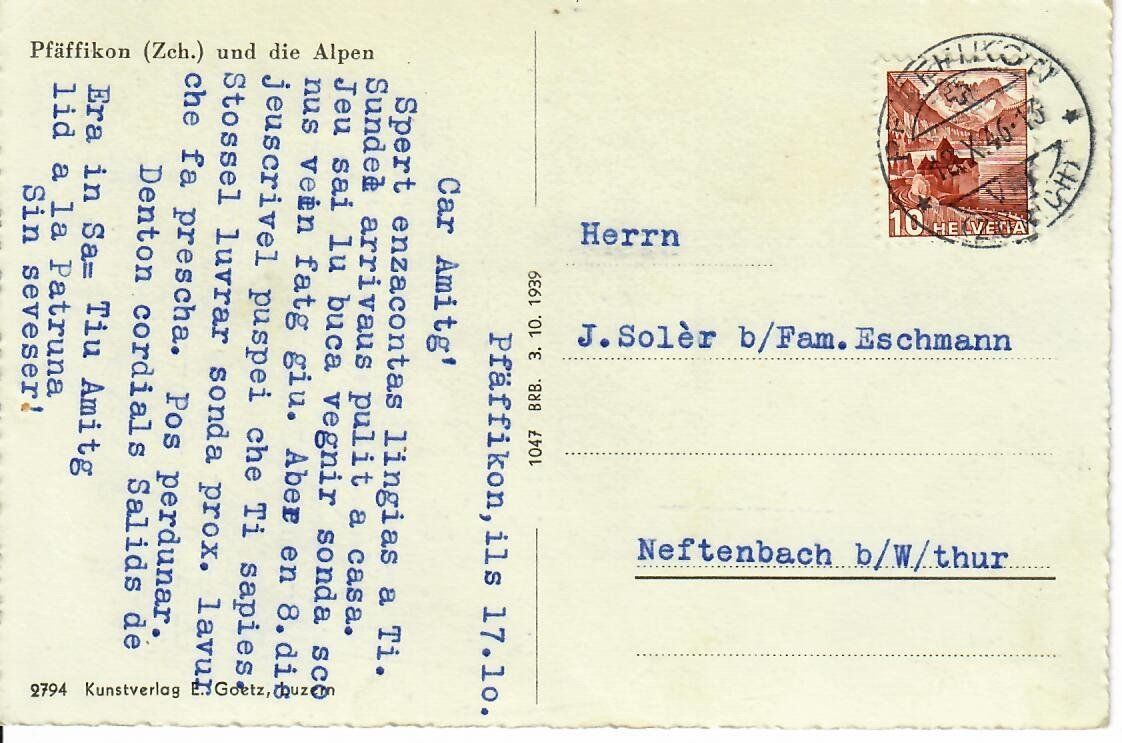 Pfäffikon (Zch.) und die Alpen
Pfäffikon, ils 17.lo.
Car Amitg'
Spert enzacontas lingias a Ti.
Sunde arrivaus pulit a casa.
Jeu sai lu buca vegnir sonda sco
nus vein fatg giu. Aber en 8.dis
jeuscrivel puspei che Ti sapies.
Stossel luvrar sonda prox. lavur
che fa prescha. Pos perdunar.
Denton cordials Salids de
Era in Sa= Tiu Amitg
lid a la Patruna
Sin seveser'
2794 Kunstverlag E. Goetz, Luzern
1047 BRB. 3. 10. 1939
18.X.46.-13
10 HELVETIA
Herrn
J.Solèr b/Fam.Eschmann
Neftenbach b/W/thur